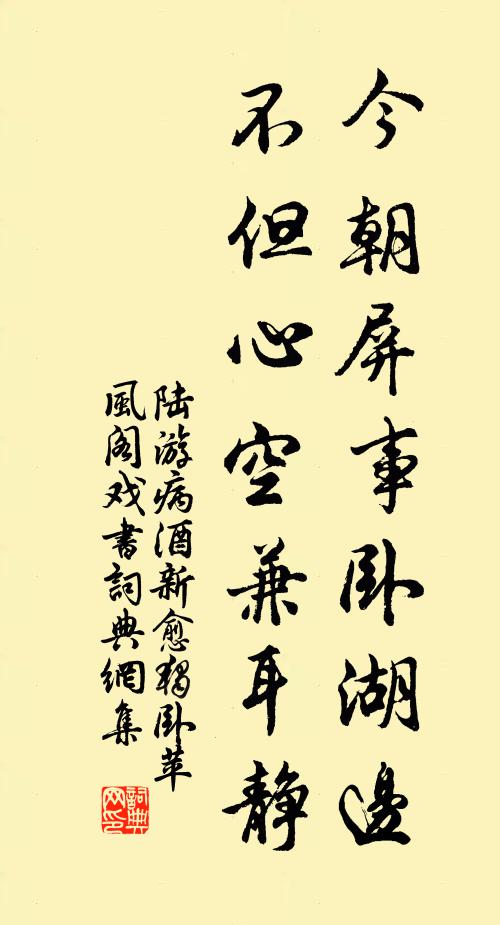 今朝屏事卧湖邊
不但心空兼耳静
陆游病酒新愈獨卧苹
風阁戏書詞典網集
詞典
网印